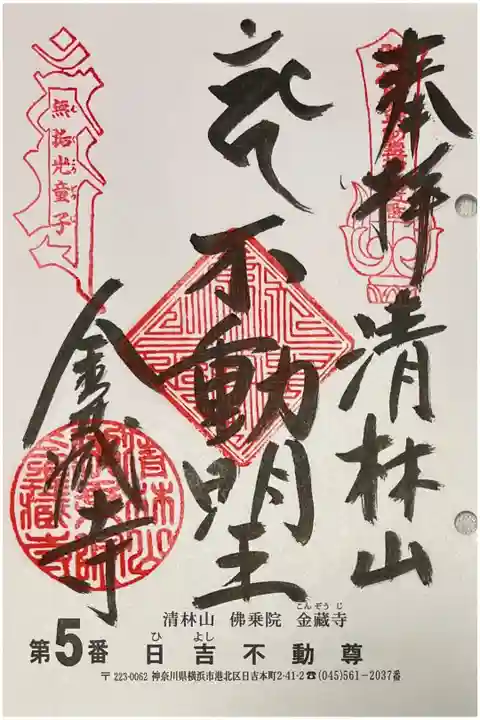 奉拝 清林山
不動明王
金蔵寺
無垢光童子
清林山 佛乗院 金藏寺
こんぞうじ
第5番 日吉不動尊
ひよし
〒223-0062 神奈川県横浜市港北区日吉本町2-41-2☎(045)561-2037番